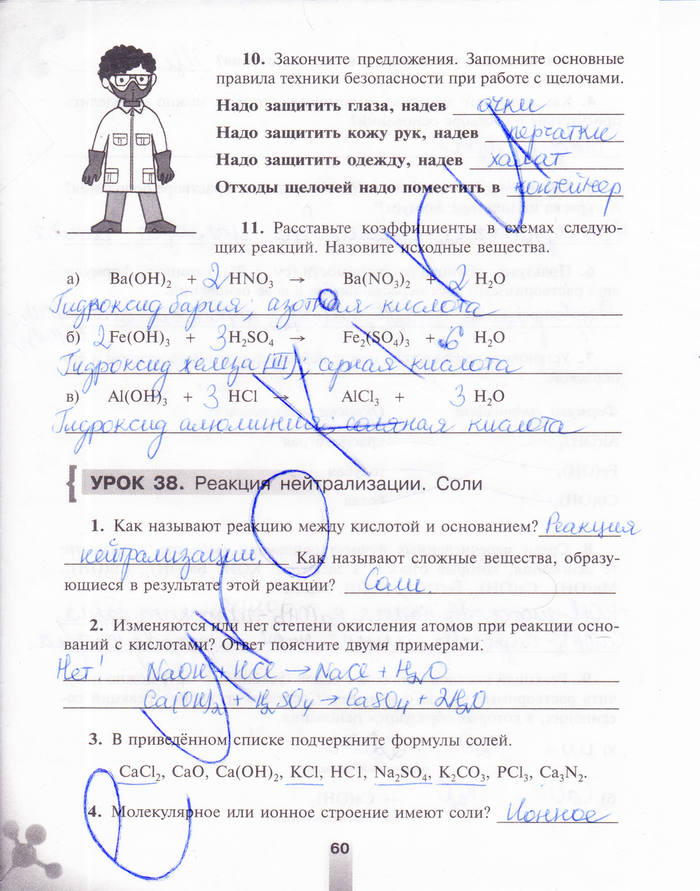 10. Закончите предложения. Запомните основные
правила техники безопасности при работе с щелочами.
Надо защитить глаза, надев очки
Надо защитить кожу рук, надев перчатки
Надо защитить одежду, надев халат
Отходы щелочей надо поместить в контейнер
11. Расставьте коэффициенты в схемах следую-
щих реакций. Назовите исходные вещества.
а) Ba(OH)₂ + 2 HNO₃ → Ba(NO₃)₂ + 2 H₂O
Гидроксид бария; азотная кислота
б) 2 Fe(OH)₃ + 3 H₂SO₄ → Fe₂(SO₄)₃ + 6 H₂O
Гидроксид железа (III); серная кислота
в) Al(OH)₃ + 3 HCl → AlCl₃ + 3 H₂O
Гидроксид алюминия; соляная кислота
УРОК 38. Реакция нейтрализации. Соли
1. Как называют реакцию между кислотой и основанием? Реакция
нейтрализации Как называют сложные вещества, образу-
ющиеся в результате этой реакции? Соли.
2. Изменяются или нет степени окисления атомов при реакции осно-
ваний с кислотами? Ответ поясните двумя примерами.
Нет! NaOH + HCl → NaCl + H₂O
Ca(OH)₂ + H₂SO₄ → CaSO₄ + 2H₂O
3. В приведённом списке подчеркните формулы солей.
CaCl₂, CaO, Ca(OH)₂, KCl, HCl, Na₂SO₄, K₂CO₃, PCl₃, Ca₃N₂.
4. Молекулярное или ионное строение имеют соли? Ионное
60